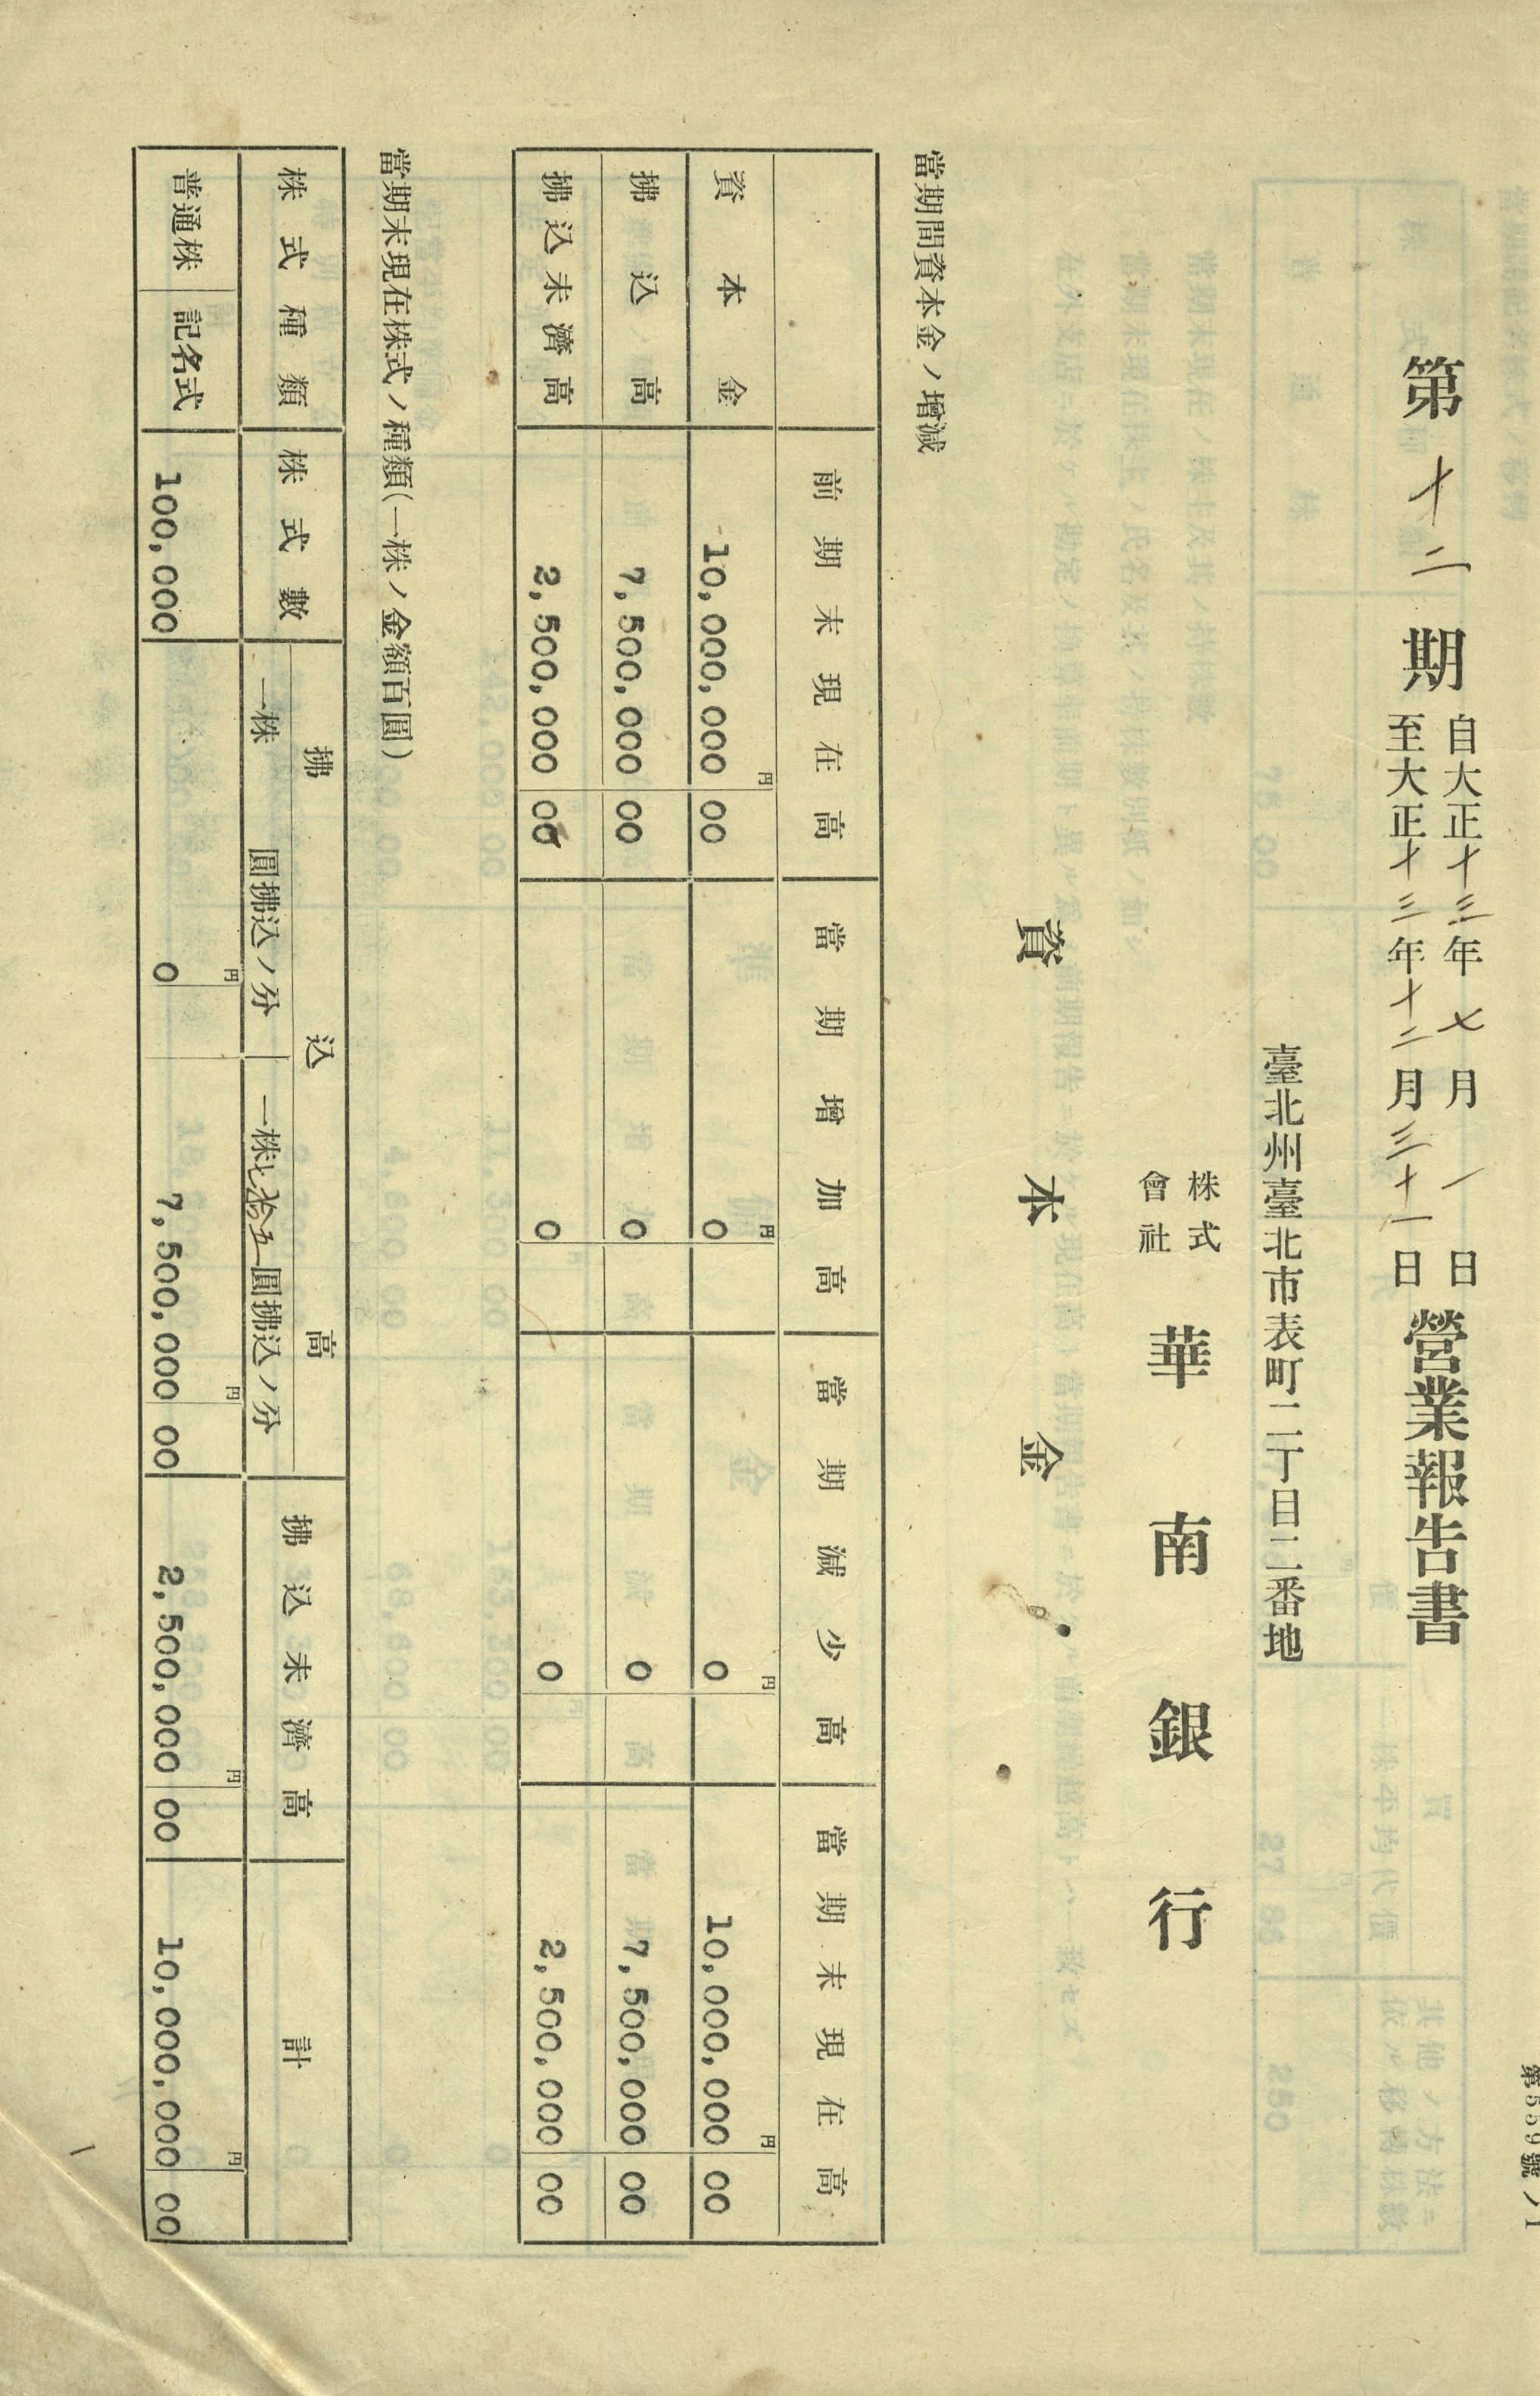 第559號ノ1
第十二期 自大正十三年七月一日 至大正十三年十二月三十一日 營業報告書
臺北州臺北市表町二丁目二番地
株式會社 華南銀行
資本金
當期間資本金ノ增減
前期末現在高 當期增加高 當期減少高 當期末現在高
資本金 10,000,000円00 0円 0円 10,000,000円00
拂込高 7,500,000 00 0 0 7,500,000 00
拂込未濟高 2,500,000 00 0 0 2,500,000 00
當期末現在株式ノ種類(一株ノ金額百圓)
株式種類 株式數 拂込高 拂込未濟高 計
一株 圓拂込ノ分 一株七拾五圓拂込ノ分
普通株 記名式 100,000 0円 7,500,000円00 2,500,000円00 10,000,000円00